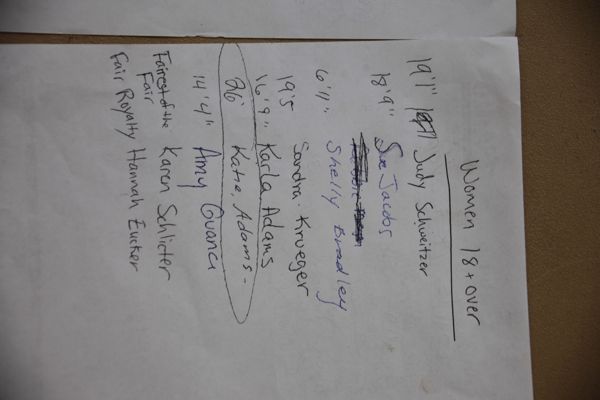 Women 18 + over
19'1" Judy Schweitzer
18'9" Sue Jacobs
6'1" Shelly Bradley
19'5 Sandra Krueger
16'9" Karla Adams
26' Katie Adams
14'4" Amy
Fairest of the Fair Karen Schlicter
Fair Royalty Hannah Eucker